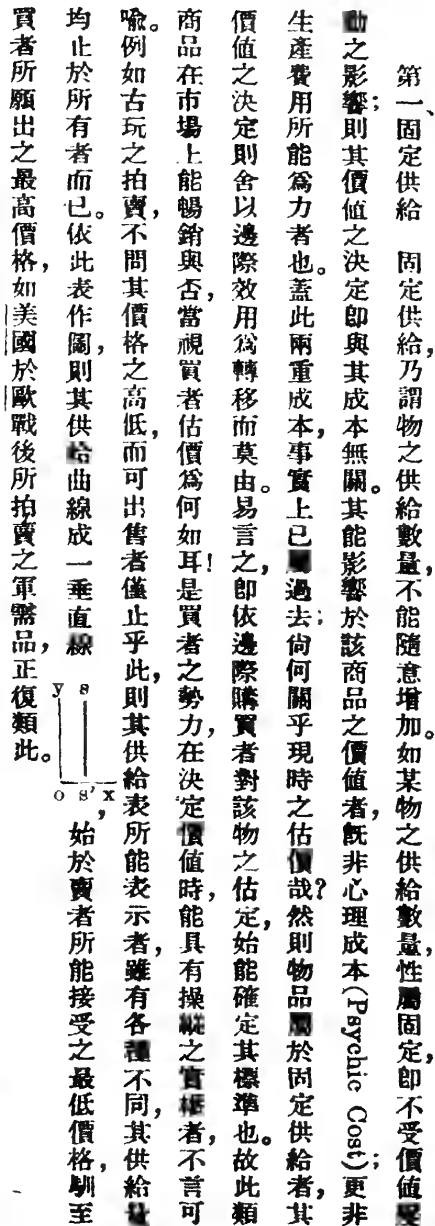 第一、固定供給　固定供給，乃謂物之供給數量，不能隨意增加。如某物之供給數量，性屬固定，即不受價值變
動之影響；則其價值之決定即與其成本無關。其能影響於該商品之價值者，旣非心理成本(Psychic Cost)；更非
生產費用所能爲力者也。蓋此兩重成本，事實上已屬過去；尙何關乎現時之估價哉？然則物品屬於固定供給者，其
價值之決定則舍以邊際效用爲轉移而莫由。易言之，即依邊際購買者對該物之估定，始能確定其標準也。故此類
商品在市場上能暢銷與否，當視買者估價爲何如耳！是買者之勢力，在決定價值時，能具有操縱之實權者，不言可
喩。例如古玩之拍賣，不問其價格之高低，而可出售者僅止乎此，則其供給表所能表示者，雖有各種不同，其供給量
均止於所有者而已。依此表作圖，則其供給曲線成一垂直線 y s o s' x，始於賣者所能接受之最低價格，馴至
買者所願出之最高價格，如美國於歐戰後所拍賣之軍需品，正復類此。